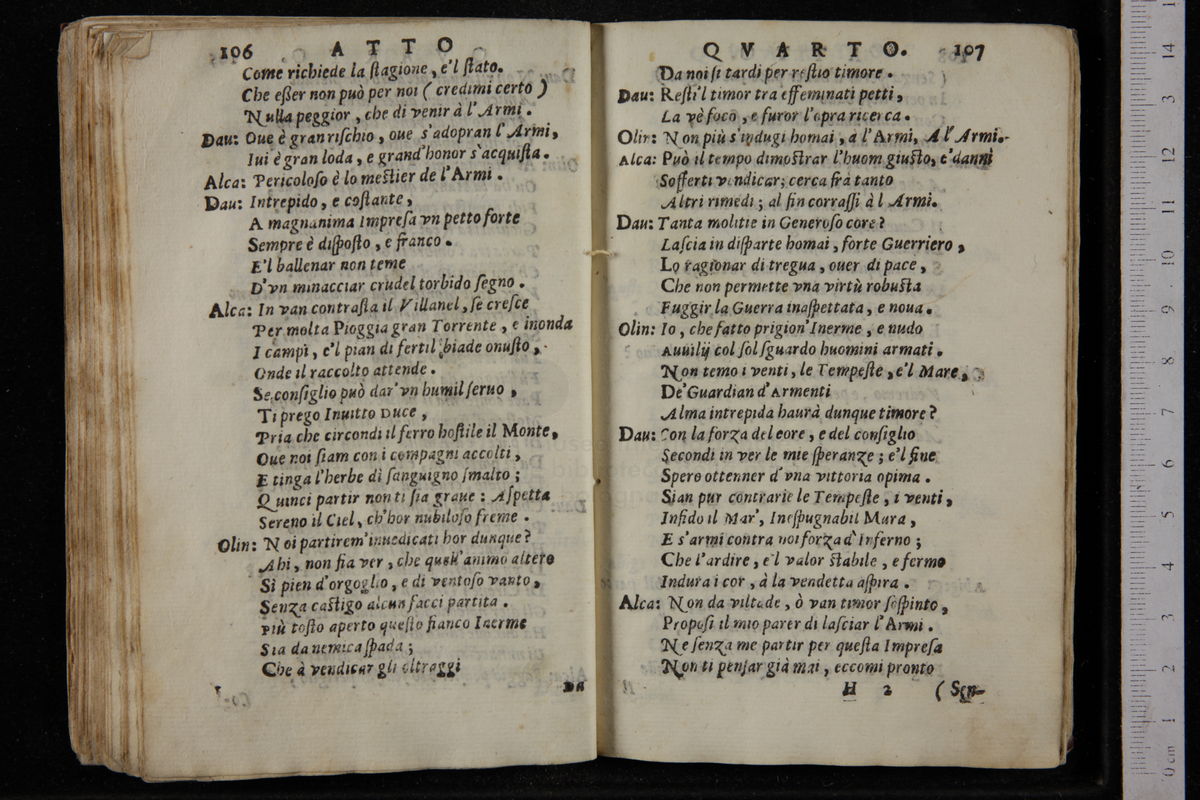 106 ATTO
Come richiede la ſtagione, e'l ſtato.
Che eßer non può per noi (credimi certo)
Nulla peggior, che di venir à l'Armi.
Dau: Oue è gran riſchio, oue s'adopran l'Armi,
Iui è gran loda, e grand'honor s'acquiſta.
Alca: Pericoloſo è lo meſtier de l'Armi.
Dau: Intrepido, e coſtante,
A magnanima Impreſa vn petto forte
Sempre è diſpoſto, e franco.
E'l ballenar non teme
D'vn minacciar crudel torbido ſegno.
Alca: In van contraſta il Villanel, ſe creſce
Per molta Pioggia gran Torrente, e inonda
I campi, e'l pian di fertil biade onuſto,
Onde il raccolto attende.
Se conſiglio può dar'vn humil ſeruo,
Ti prego Inuitto Duce,
Pria che circondi il ferro hoſtile il Monte,
Oue noi ſiam con i compagni accolti,
E tinga l'herbe di ſanguigno ſmalto;
Quinci partir non ti ſia graue: Aſpetta
Sereno il Ciel, ch'hor nubiloſo freme.
Olin: Noi partirem'inuedicati hor dunque?
Ahi, non fia ver, che quell'animo altero
Sì pien d'orgoglio, e di ventoſo vanto,
Senza caſtigo alcun facci partita.
Più toſto aperto queſto fianco Inerme
Sia da nemica ſpada;
Che à vendicar gli oltraggi
Da
QVARTO. 107
Da noi ſi tardi per reſtio timore.
Dau: Reſti'l timor tra effeminati petti,
La vè foco, e furor l'opra ricerca.
Olin: Non più s'indugi homai, a l'Armi, A l'Armi.
Alca: Può il tempo dimoſtrar l'huom giuſto, e'danni
Sofferti vendicar; cerca fra tanto
Altri rimedi; al fin corraſſi à l Armi.
Dau: Tanta molitie in Generoſo core?
Laſcia in diſparte homai, forte Guerriero,
Lo ragionar di tregua, ouer di pace,
Che non permette vna virtù robuſta
Fuggir la Guerra inaſpettata, e noua.
Olin: Io, che fatto prigion'Inerme, e nudo
Auuilij col ſol ſguardo huomini armati.
Non temo i venti, le Tempeſte, e'l Mare,
De'Guardian d'Armenti
Alma intrepida haurà dunque timore?
Dau: Con la forza del eore, e del conſiglio
Secondi in ver le mie ſperanze; e'l fine
Spero ottenner d'vna vittoria opima.
Sian pur contrarie le Tempeſte, i venti,
Infido il Mar', Ineſpugnabil Mura,
E s'armi contra noi forza d'Inferno;
Che l'ardire, e'l valor ſtabile, e fermo
Indura i cor, à la vendetta aſpira.
Alca: Non da viltade, ò van timor ſoſpinto,
Propoſi il mio parer di laſciar l'Armi.
Ne ſenza me partir per queſta Impreſa
Non ti penſar già mai, eccomi pronto
H 2 (Sen-